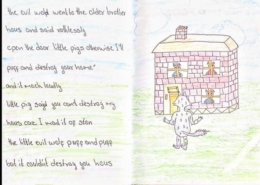 the evil wolf went to the older brother
hous and said ruthlessly
open the door little pigs otherwise I'll
puff and destroy your home"
and it much loudly
little pig said you can't destroy my
hous cose I mad it of ston
the little evil wolf puff and puff
but it couldn't destroy you hous